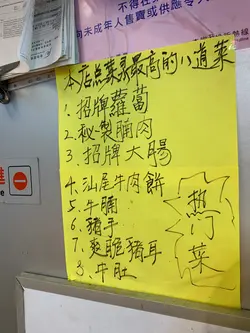 不得在
向未成年人售賣或供應令人
本店点菜录最高的八道菜
1. 招牌蘿蔔
2. 秘製腩肉
3. 招牌大腸
4. 汕尾牛肉餅
5. 牛腩
6. 豬手
7. 爽脆豬耳
8. 牛肚
热门菜